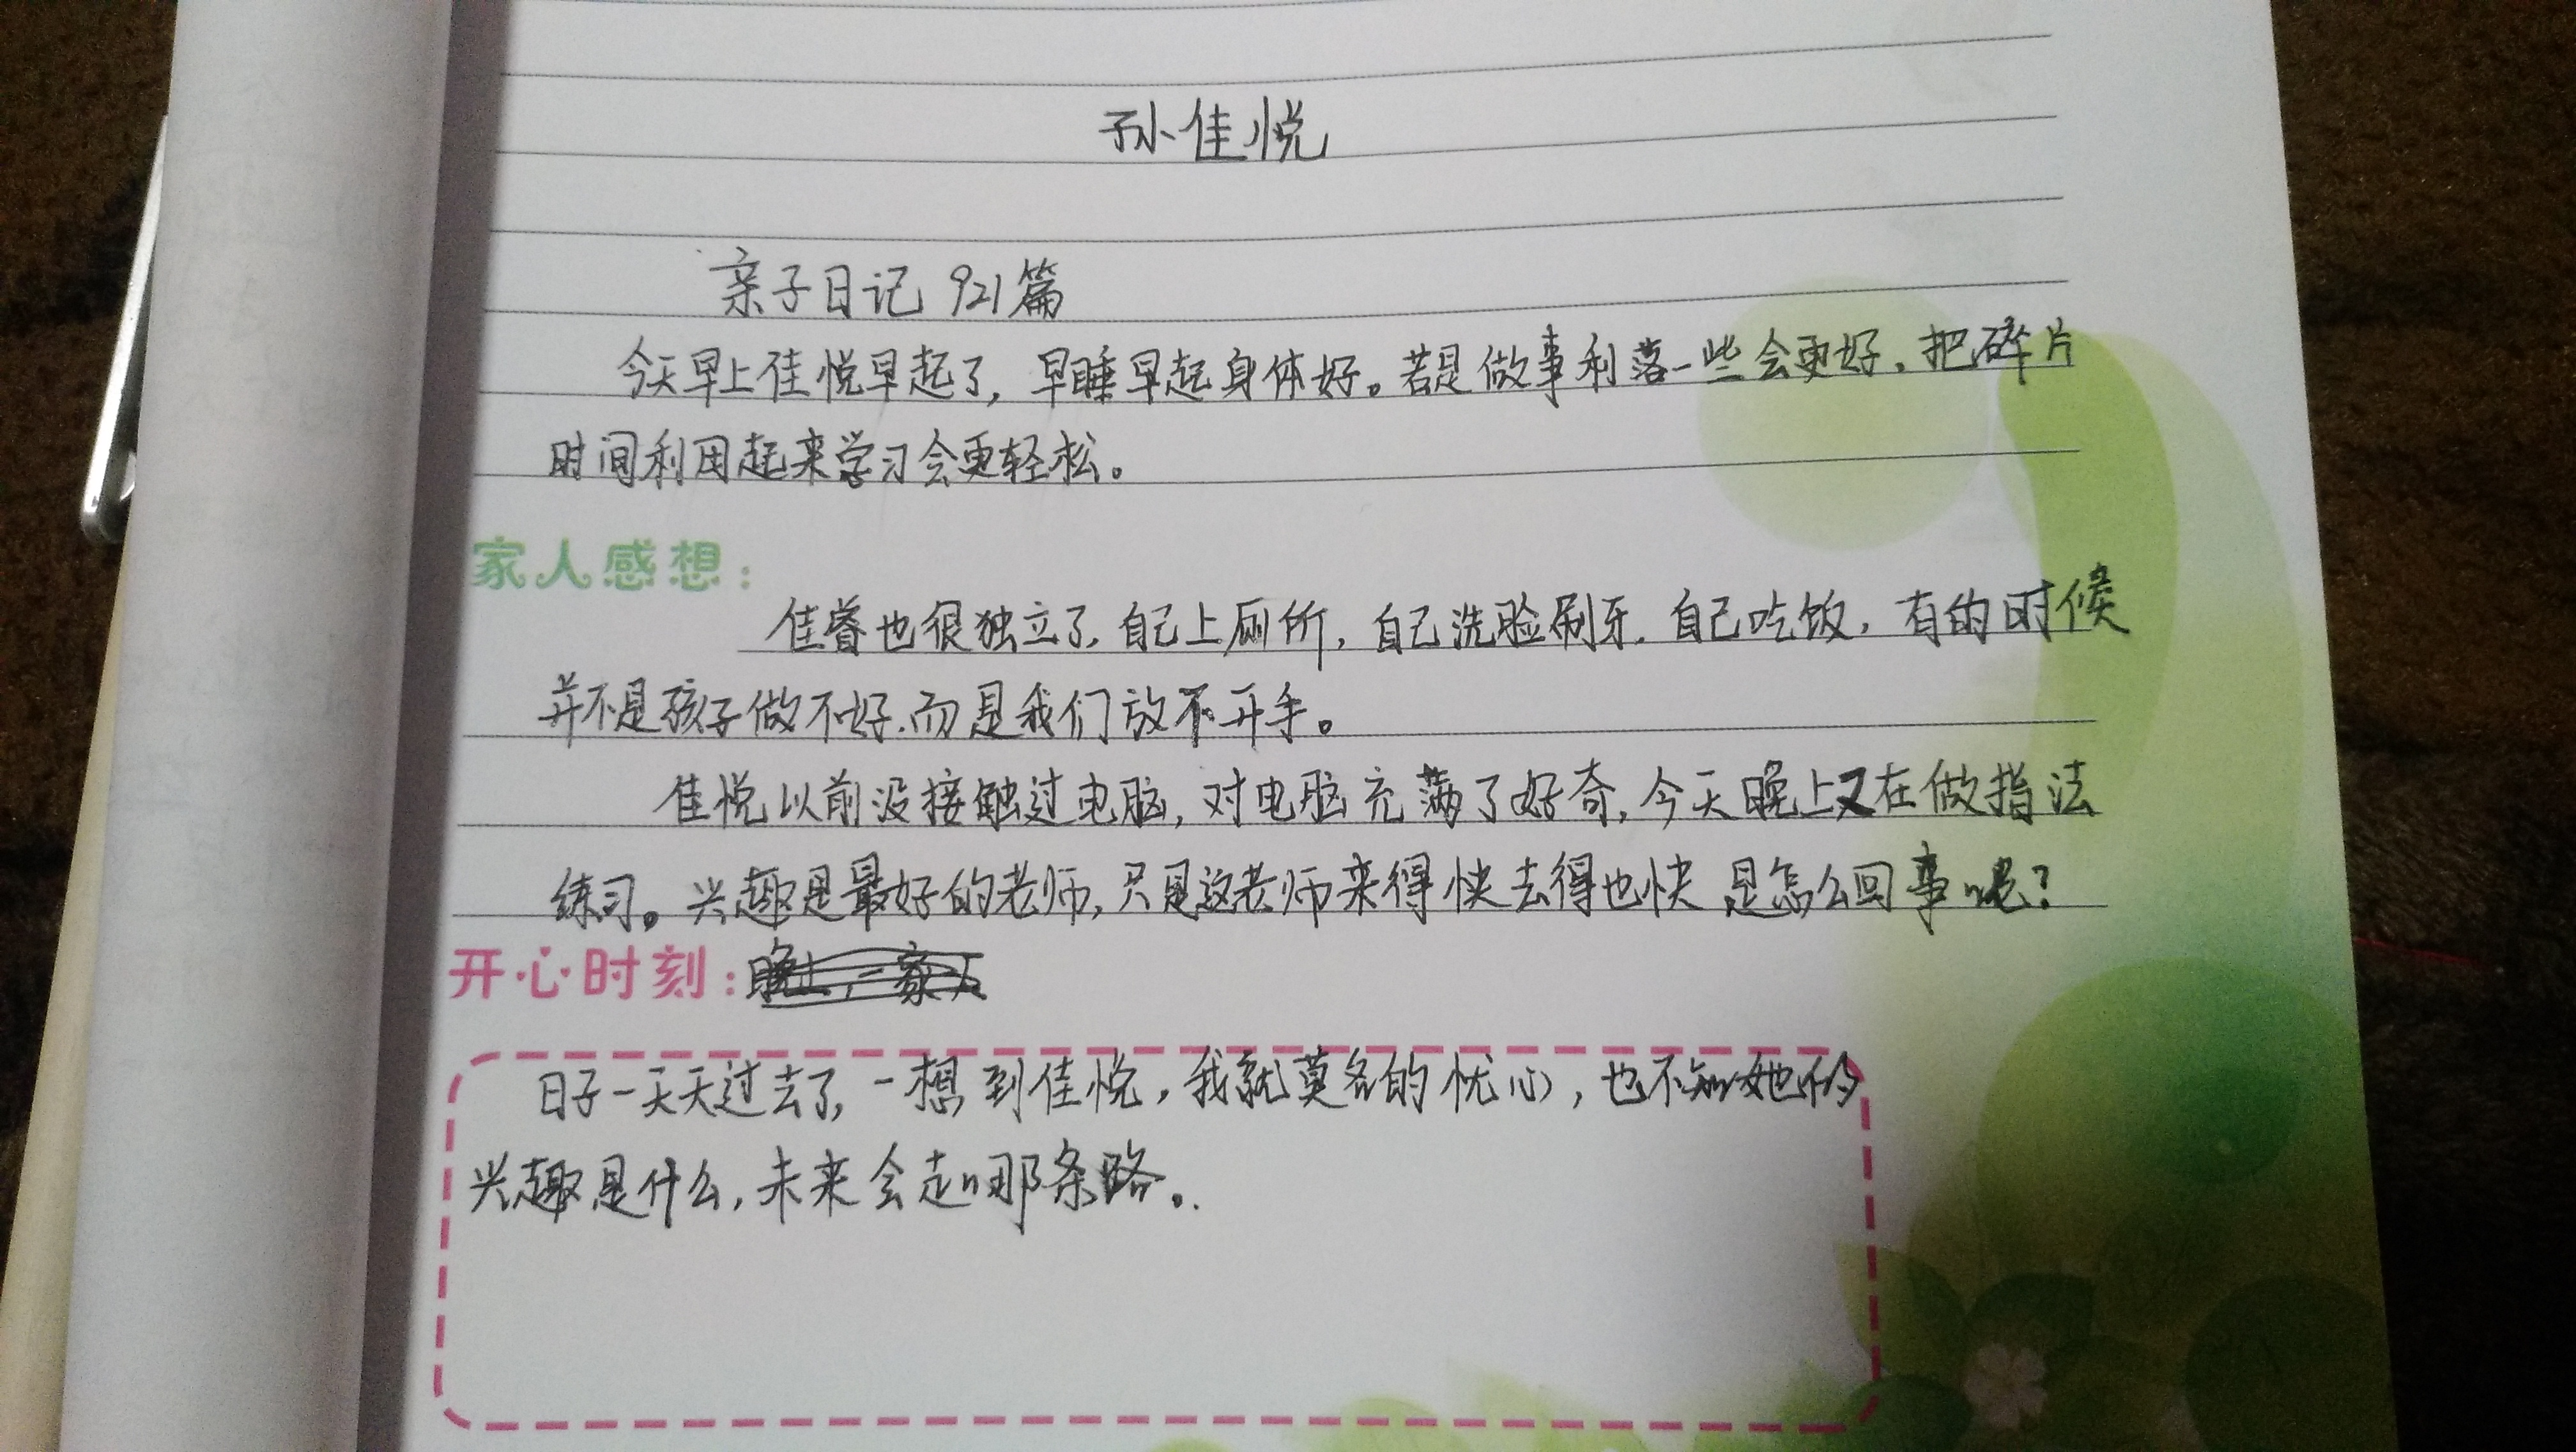 孙佳悦
亲子日记 921篇
今天早上佳悦早起了，早睡早起身体好。若是做事利落一些会更好，把碎片
时间利用起来学习会更轻松。
家人感想：
佳睿也很独立了，自己上厕所，自己洗脸刷牙，自己吃饭，有的时候
并不是孩子做不好，而是我们放不开手。
佳悦以前没接触过电脑，对电脑充满了好奇，今天晚上又在做指法
练习。兴趣是最好的老师，只是这老师来得快去得也快 是怎么回事呢？
开心时刻：晚上，一家人
日子一天天过去了，一想到佳悦，我就莫名的忧心，也不知她的
兴趣是什么，未来会走哪条路。